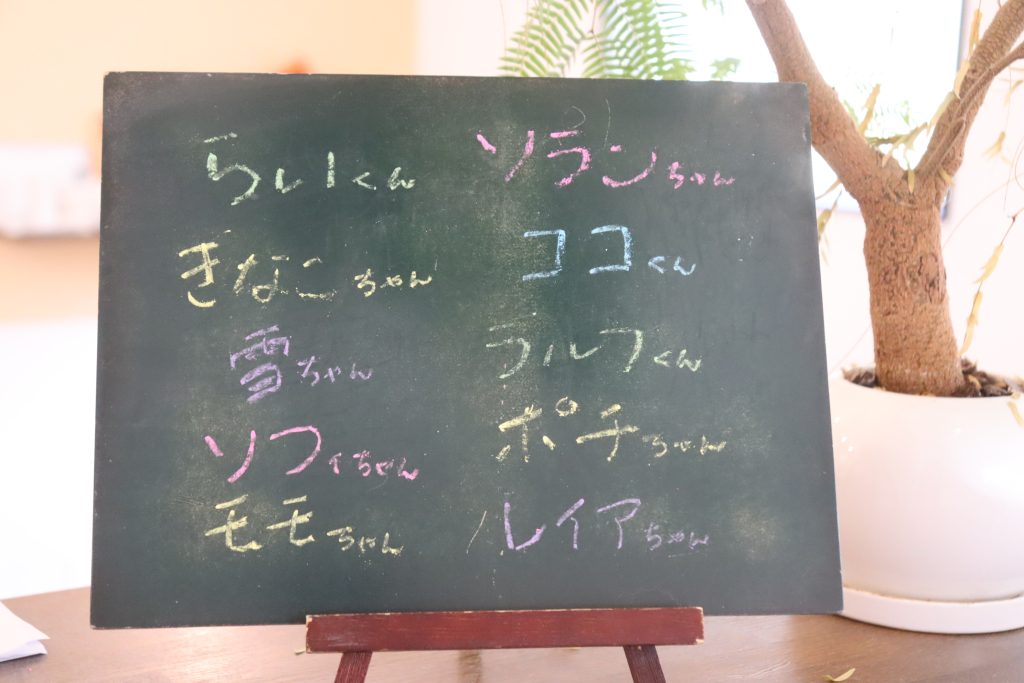 らいくん
きなこちゃん
雪ちゃん
ソフィちゃん
モモちゃん
ソランちゃん
ココくん
ラルフくん
ポチちゃん
レイアちゃん